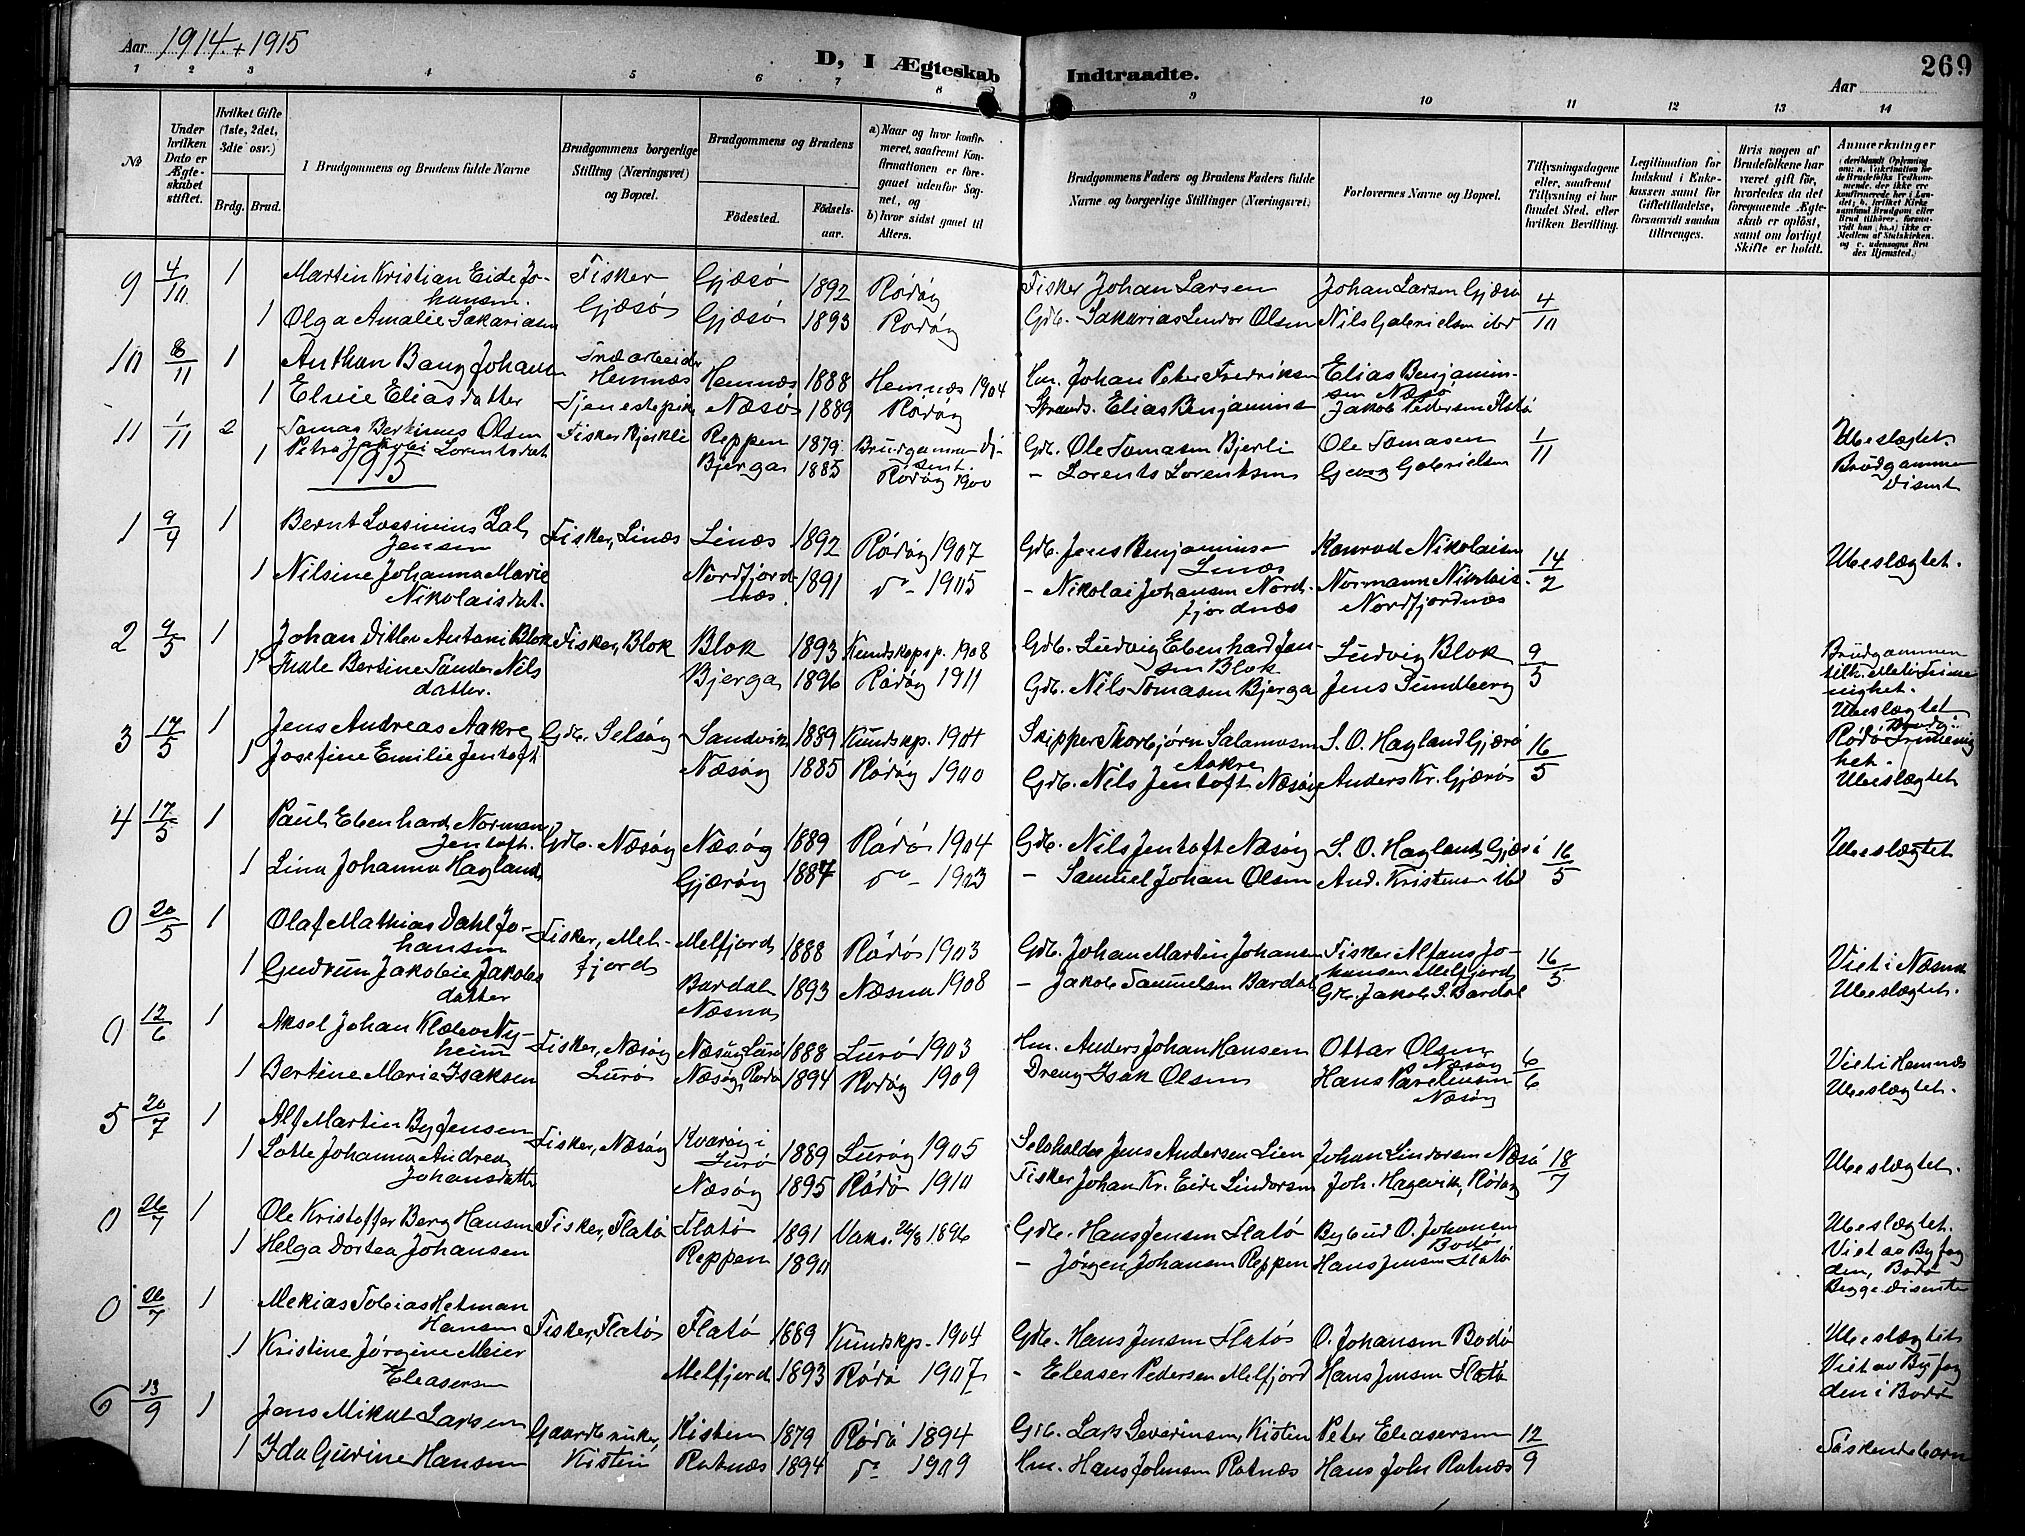 Aar 1914 + 1915
D, I Ægteskab Indtraadte.
269
Aar
1 2 3 4 5 6 7 8 9 10 11 12 13 14
No
Under hvilken Dato er Ægteskabet stiftet.
Hvilket Gifte (1ste, 2det, 3die osv.)
Brdg. Brud.
1 Brudgommens og Brudens fulde Navne
Brudgommens borgerlige Stilling (Næringsvei) og Bopæl.
Brudgommens og Brudens
Födested.
Födselsaar.
a) Naar og hvor konfirmeret, saafremt Konfirmationen er foregaaet udenfor Sognet, og
b) hvor sidst gaaet til Alters.
Brudgommens Faders og Brudens Faders fulde Navne og borgerlige Stillinger (Næringsvei)
Forlovernes Navne og Bopæl.
Tillysningsdagene eller, saafremt Tillysning ei har fundet Sted, efter hvilken Bevilling.
Legitimation for Indskud i Enkekassen samt for Giftetilladelse, forsaavidt saadan tiltrænges.
Hvis nogen af Brudefolkene har været gift för, hvorledes da det foregaaende Ægteskab er oplöst, samt om lovligt Skifte er holdt.
Anmærkninger
9 4/10 1 Martin Kristian Eide Johansen. Fisker Gjæsø Gjæsø 1892 Rødøy Fisker Johan Larsen Johan Larsen Gjæsø 4/10
1 Olga Amalie Sakariasen Gjæsø 1893 Rødøy Gdb. Sakarias Lindor Olsen Nils Gabrielsen ibd
10 8/11 1 Anthon Bang Johansen Hemnæs Hemnæs 1888 Hemnæs 1904 Hm. Johan Peter Fredriksen Elias Benjaminsen Næsø
1 Elvie Eliasdatter Tjenestepike Næsø 1889 Rødøy Strands. Elias Benjaminsen Jakob Pedersen Flatø
11 1/11 2 Tomas Bertinus Olsen Fisker Bjerkli Reppen 1879 Brudgommen Disent. Gdb. Ole Tomasen Bjerli Ole Tomasen 1/11 Ubeslægtet.
1 Petra Jakobi Lorentsdat Bjerga 1885 Rødøy 1900 - Lorents Lorentsen Georg Gabrielsen Brudgommen Disent
1915
1 9/4 1 Bernt Jensen Fisker, Linæs Linæs 1892 Rødøy 1907 Gdb. Jens Benjaminsen Linæs Konrad Nikolaisen 14/2 Ubeslægtet.
1 Nilsine Johanna Marie Nikolaisdat. Nordfjordnæs. 1891 do - 1905 - Nikolai Johansen Nordfjordnæs Normann Nikolais. Nordfjordnæs
2 9/5 1 Johan Ditlev Antoni Blok Fisker, Blok Blok 1893 Kundskapsp. 1908 Gdb. Ludvig Ebenhard Jensen Blok Ludvig Blok 9/5 Brudgommen
1 Bertine Nilsdatter. Bjerga 1896 Rødøy 1911 Gdb. Nils Tomasen Bjerga Jens Sundberg Ubeslægtet
3 17/5 1 Jens Andreas Aakre Gdb. Selsøy Sandvik 1889 Kundskp. 1904 Skipper Torbjørn Salamonsen Aakre S. O. Hagland Gjærø 16/5
1 Josefine Emilie Jentoft Næsøy 1885 Rødøy 1900 Gdb. Nils Jentoft Næsøy Anders Kr. Gjærøs Ubeslægtet
4 17/5 1 Paul Ebenhard Norman Jentoft. Gdb. Næsøy Næsøy 1889 Rødø 1904 Gdb. Nils Jentoft Næsøy S. O. Hagland, Gjærø 16/5 Ubeslægtet
1 Lina Johanna Hagland, Gjærøy 1887 do - 1903 - Samuel Johan Olsen And. Kristensen ibd
0 20/5 1 Olaf Mathias Dahl Johansen Fisker, Melfjord Melfjord 1888 Rødø 1903 Gdb. Johan Martin Johansen Fisker Alfons Johansen Melfjord 16/5 Viet i Næsna
1 Gudrun Jakobie Jakobsdatter Bardal Næsna 1893 Næsna 1908 - Jakob Samuelsen Bardal Gdb. Jakob S. Bardal Ubeslægtet.
0 12/6 1 Aksel Johan Klæbo Nyheim Fisker, Næsøy Lurø Næsøy Lurø 1888 Lurø 1903 Hm. Anders Johan Hansen Ottar Olsen, Næsøy 6/6 Viet i Hemnæs
1 Bertine Marie Isaksen Næsøy, Rødø 1894 Rødøy 1909 Dreng Isak Olsen Hans Parelinsen Næsøy Ubeslægtet.
5 20/7 1 Alf Martin By Jensen Fisker, Næsøy Kvarøy i Lurø 1889 Lurøy 1905 Selvholder Jens Andersen Lien Johan Lindorsen Næsø 18/7 Ubeslægtet.
1 Lotte Johanna Andrea Johansdatter Næsøy 1895 Rødø 1910 Fisker Johan Kr. Eide Lindorsen Joh. Hagevik, Rødøy
0 26/7 1 Ole Kristoffer Berg Hansen Fisker, Flatø Flatø 1891 Vaks. 26/8 1896 Gdb. Hans Jensen Flatø Bybud O. Johansen Bodø Ubeslægtet.
1 Helga Dortea Johansen Reppen 1890 - Jørgen Johansen Reppen Hans Jensen Flatø Viet av Byfogden, Bodø Begge disenter
0 26/7 1 Mekias Tobias Hetman Hansen Fisker, Flatø Flatø 1889 Kundskp. 1904 Gdb. Hans Jensen Flatø O. Johansen Bodø Ubeslægtet
1 Kristine Jørgine Meier Eleasersen Melfjord 1893 Rødø 1907 - Eleaser Pedersen Melfjord Hans Jensen Flatø Viet av Byfogden i Bodø
6 13/9 1 Jens Mikal Larsen Gaardbruker, Kistin Kisten 1879 Rødø 1894 Gdb. Lars Severinsen, Kisten Peter Eleasersen 12/9 Søskendebarn
1 Ida Gurine Hansen Ratnæs 1894 do 1909 Hm. Hans Johnsen Ratnæs Hans Joh. Ratnæs